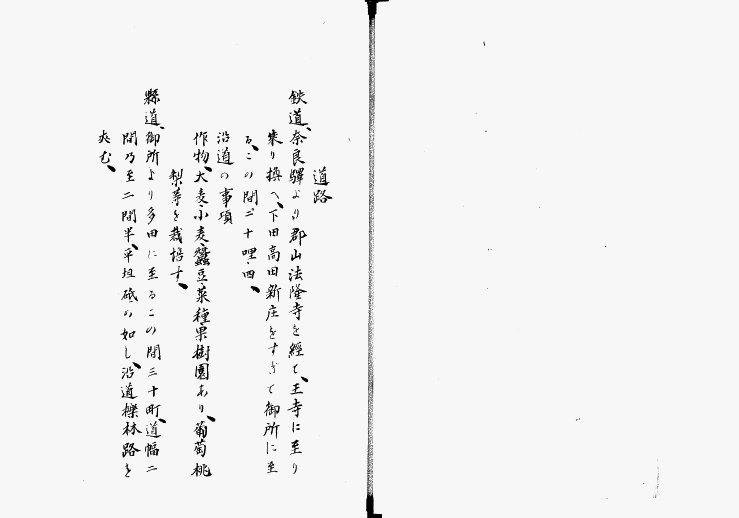 道路
鉄道、奈良驛より郡山法隆寺を經て、王寺に至り
乗り換へ、下田高田新庄をすぎて御所に至
る、この間二十哩・四、
沿道の事項
作物、大麦、小麦、蠶豆、菜種、果樹園あり、葡萄桃
梨等を栽培す、
縣道、御所より多田に至るこの間三十町、道幅二
間乃至二間半、平坦砥の如し、沿道櫟林路を
夾む、